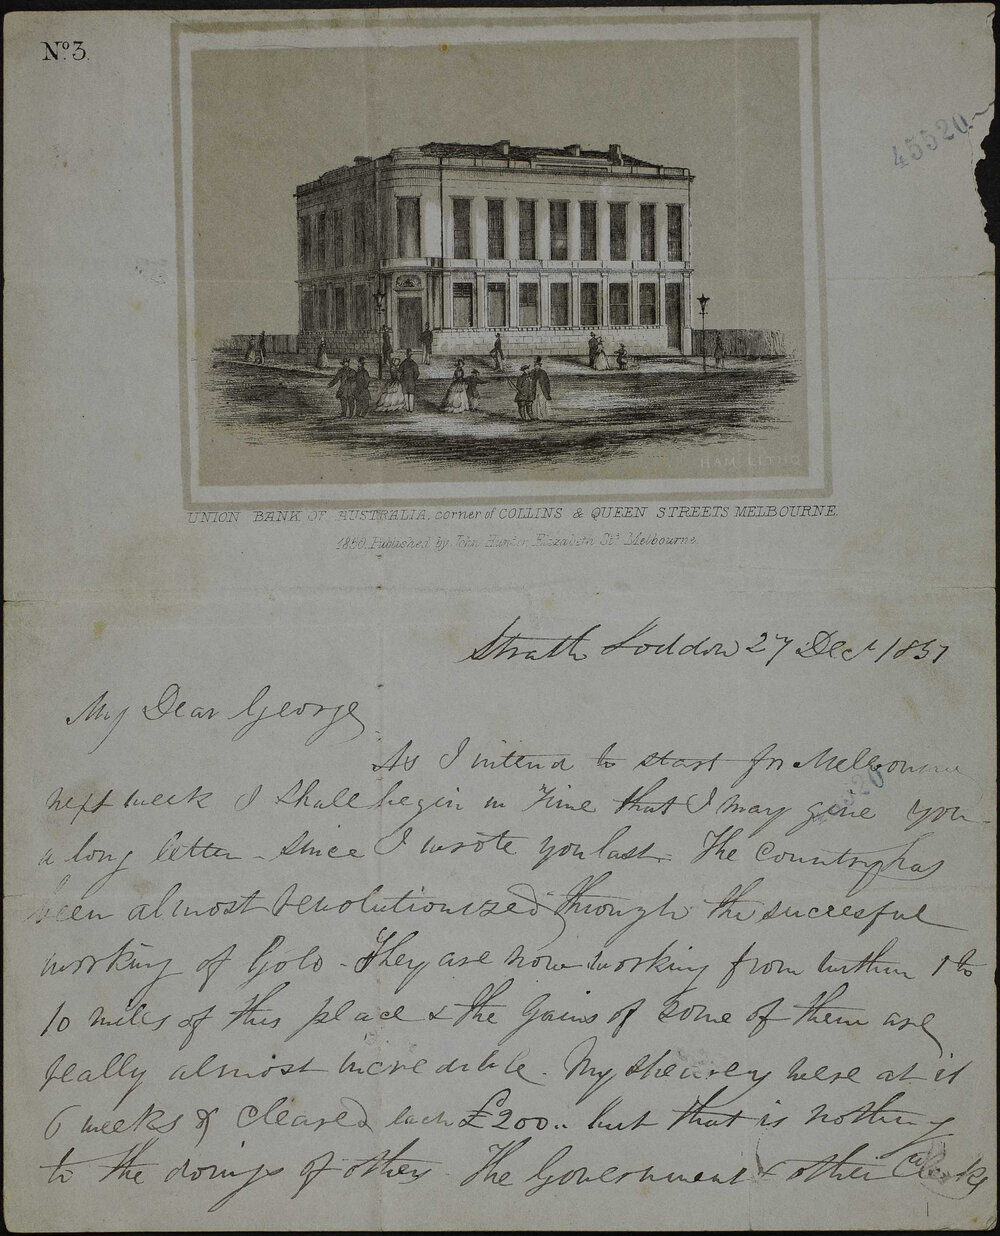 No. 3.
45520
HAM LITHO
UNION BANK OF AUSTRALIA, corner of COLLINS & QUEEN STREETS MELBOURNE.
1850. Published by John Hunter Elizabeth St. Melbourne.
Strath Loddon 27 Decr 1851
My Dear George
As I intend to start for Melbourne
next week I shall begin in time that I may give you
a long letter - since I wrote you last. The Country has
been almost revolutionized through the successful
working of Gold - They are now working from within 1 to
10 miles of this place & the gains of some of them are
really almost incredible. My shearers were at it
6 weeks & cleared each £200.. but that is nothing
to the doings of others. The Government & other Clerks